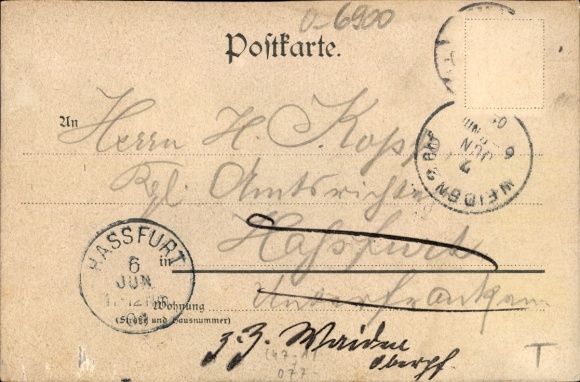 0-6900
Postkarte.
An
Herrn H. Kopp
Kgl. Amtsrichter
in Haßfurt
Wohnung Unterfranken
(Straße und Hausnummer)
z. Z. Waiden
Oberpf.
T
HASSFURT
6
JUN
WEIDEN 2 BHF
7
JUN